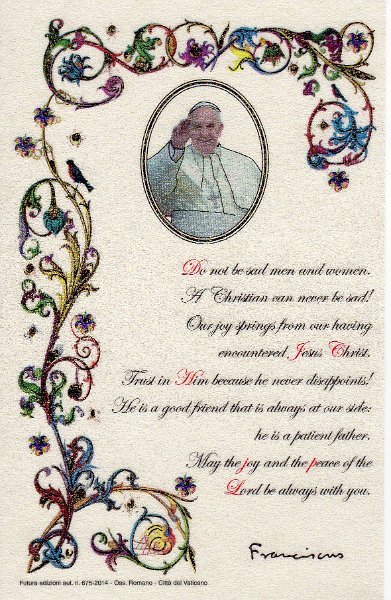 Do not be sad men and women.
A Christian can never be sad!
Our joy springs from our having
encountered Jesus Christ.
Trust in Him because he never disappoints!
He is a good friend that is always at our side:
he is a patient father.
May the joy and the peace of the
Lord be always with you.
Franciscus
Futura edizioni aut. n. 675-2014 - Oss. Romano - Città del Vaticano